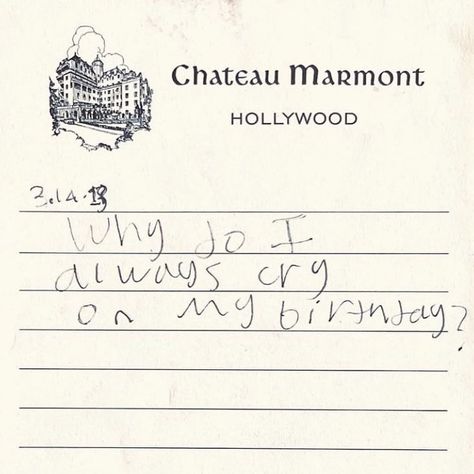 Chateau Marmont
HOLLYWOOD
3.14.13
Why do I
always cry
on my birthday?